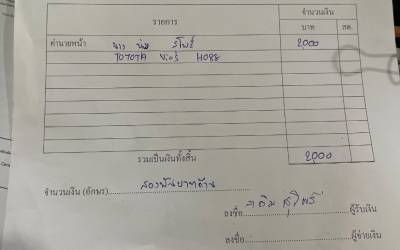 รายการ
จำนวนเงิน
บาท สต.
ค่านายหน้า นาง 2,000
TOYOTA
รวมเป็นเงินทั้งสิ้น 2,000
จำนวนเงิน (อักษร) สองพันบาทถ้วน
ลงชื่อ ผู้รับเงิน
ลงชื่อ ผู้จ่ายเงิน